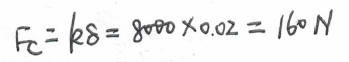 Fc = kδ = 8000 × 0.02 = 160 N